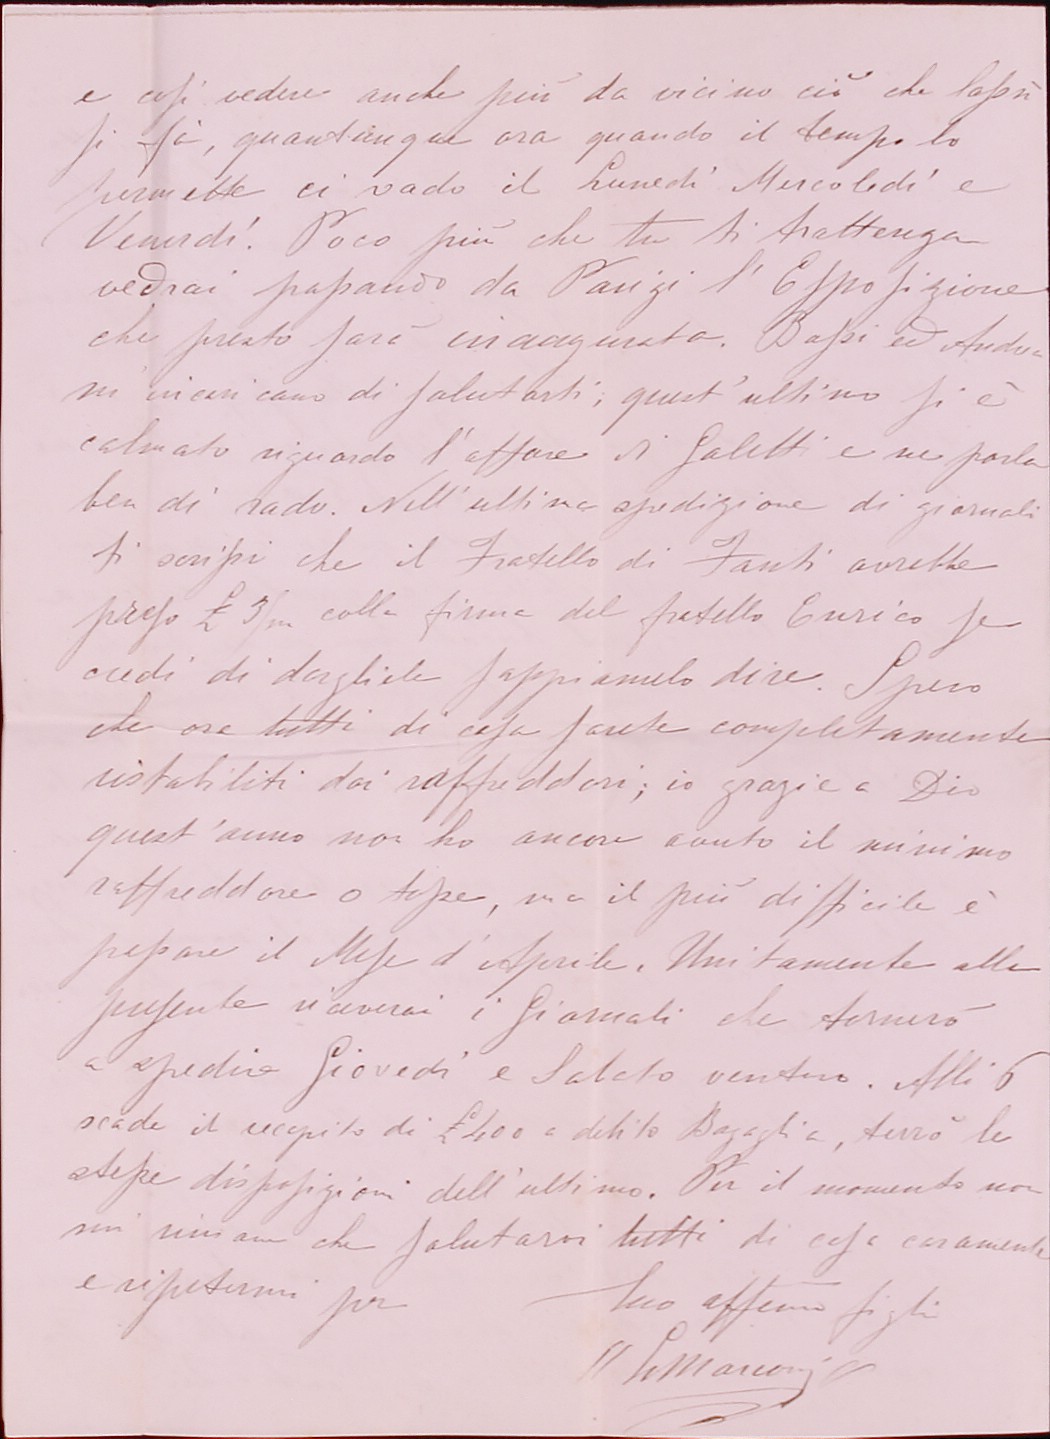 e così vedere anche più da vicino ciò che lassù
si fà, quantunque ora quando il tempo lo
permette ci vado il Lunedì Mercoledì e
Venerdì. Poco più che tu ti trattenga
vedrai passando da Parigi l'Esposizione
che presto sarà inaugurata. Bassi ed Andrea
m'incaricano di salutarti; quest'ultimo si è
calmato riguardo l'affare di Galetti e ne parla
ben di rado. Nell'ultima spedizione di giornali
ti scrissi che il Fratello di Fanti avrebbe
preso £ 3/m colla firma del fratello Enrico se
credi di dargliele sappiamelo dire. Spero
che ora tutti di casa sarete completamente
ristabiliti dai raffreddori; io grazie a Dio
quest'anno non ho ancora avuto il minimo
raffreddore o tosse, ma il più difficile è
passare il Mese d'Aprile. Unitamente alla
presente riceverai i Giornali che tornerò
a spedire Giovedì e Sabato venturo. Alli 6
scade il recapito di £ 400 a debito Bagaglia, terrò le
stesse disposizioni dell'ultimo. Per il momento non
mi rimane che salutarvi tutti di casa caramente
e ripetermi per
tuo affemo figlio
Marconi